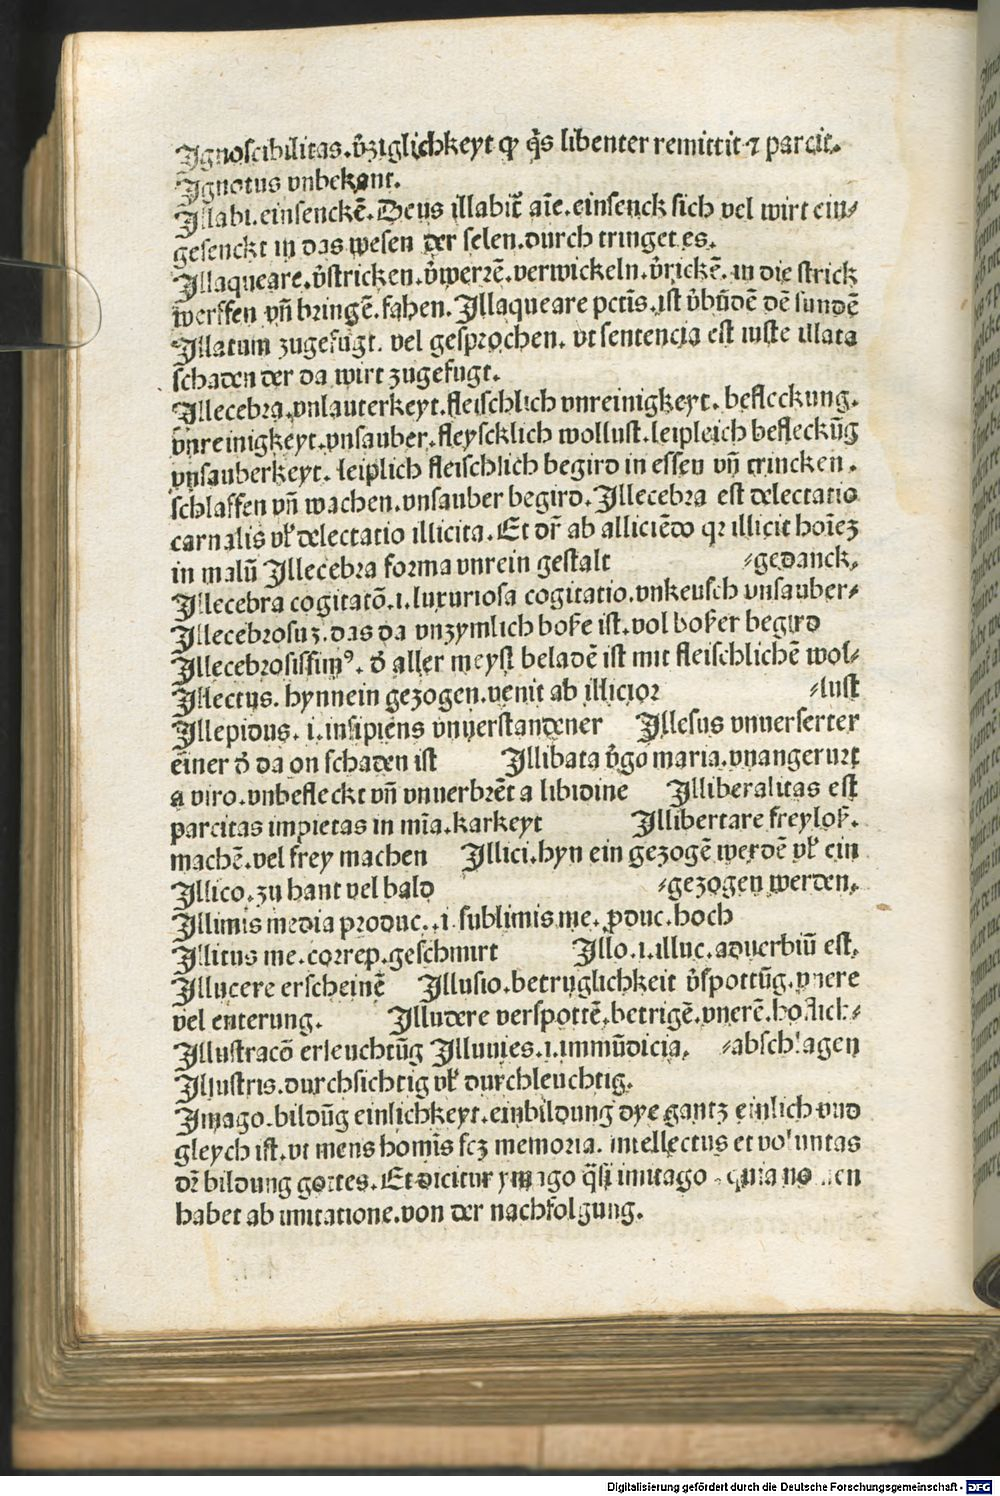 Ignoscibilitas.v̉ziglichkeyt ꝙ q̉s libenter remittit ⁊ parcit.
Ignotus vnbekant.
Illabi.einsenckē.Deus illabit̉ aīe.einsenck sich vel wirt ein⸗
gesenckt in das wesen der selen.durch tringet es.
Illaqueare.v̉stricken.v̉werrē.verwickeln.v̉rickē.in die strick
werffen vñ bringē.fahen.Illaqueare pctīs.ist v̉būdē dē sundē
Illatum zugefugt. vel gesprochen. vt sentencia est iuste illata
schaden der da wirt zugefugt.
Illecebra.vnlauterkeyt.fleischlich vnreinigkeyt. befleckung.
vnreinigkeyt.vnsauber.fleyscklich wollust.leipleich befleckūg
vnsauberkeyt. leiplich fleischlich begird in essen vñ trincken.
schlaffen vñ wachen.vnsauber begird.Illecebra est delectatio
carnalis vl̉ delectatio illicita.Et dr̄ ab alliciēdo qꝛ illicit hoīeꝫ
in malū Illecebra forma vnrein gestalt ⸗gedanck.
Illecebra cogitatō.i.luxuriosa cogitatio.vnkeusch vnsauber⸗
Illecebrosuꝫ.das da vnzymlich boße ist.vol boßer begird
Illecebrosissimꝰ. d̉ aller meyst beladē ist mit fleischlichē wol⸗
Illectus. hynnein gezogen.venit ab illicior ⸗lust
Illepidus. i.insipiens vnuerstandener Illesus vnuerserter
einer d̉ da on schaden ist Illibata v̉go maria.vnangerurt
a viro.vnbefleckt vñ vnuerbrēt a libidine Illiberalitas est
parcitas impietas in mīa.karkeyt Illibertare freyloß.
machē.vel frey machen Illici.hyn ein gezogē werdē vl̉ ein
Illico.zu hant vel bald ⸗gezogen werden.
Illimis media produc..i.sublimis me. ꝓduc.hoch
Illitus me.correp.geschmirt Illo.i.illuc.aduerbiū est.
Illucere erscheinē Illusio.betruglichkeit v̉spottūg.vnere
vel enterung. Illudere verspottē.betrigē.vnerē.hoflich⸗
Illustracō erleuchtūg Illuuies.i.immūdicia. ⸗abschlagen
Illustris.durchsichtig vl̉ durchleuchtig.
Imago.bildūg einlichkeyt.einbildung dye gantz einlich vnd
gleych ist.vt mens homīs scꝫ memoria. intellectus et voluntas
dr̄ bildung gottes.Et dicitur ymago q̄si imitago. quia no men
habet ab imitatione.von der nachfolgung.
Digitalisierung gefördert durch die Deutsche Forschungsgemeinschaft - DFG